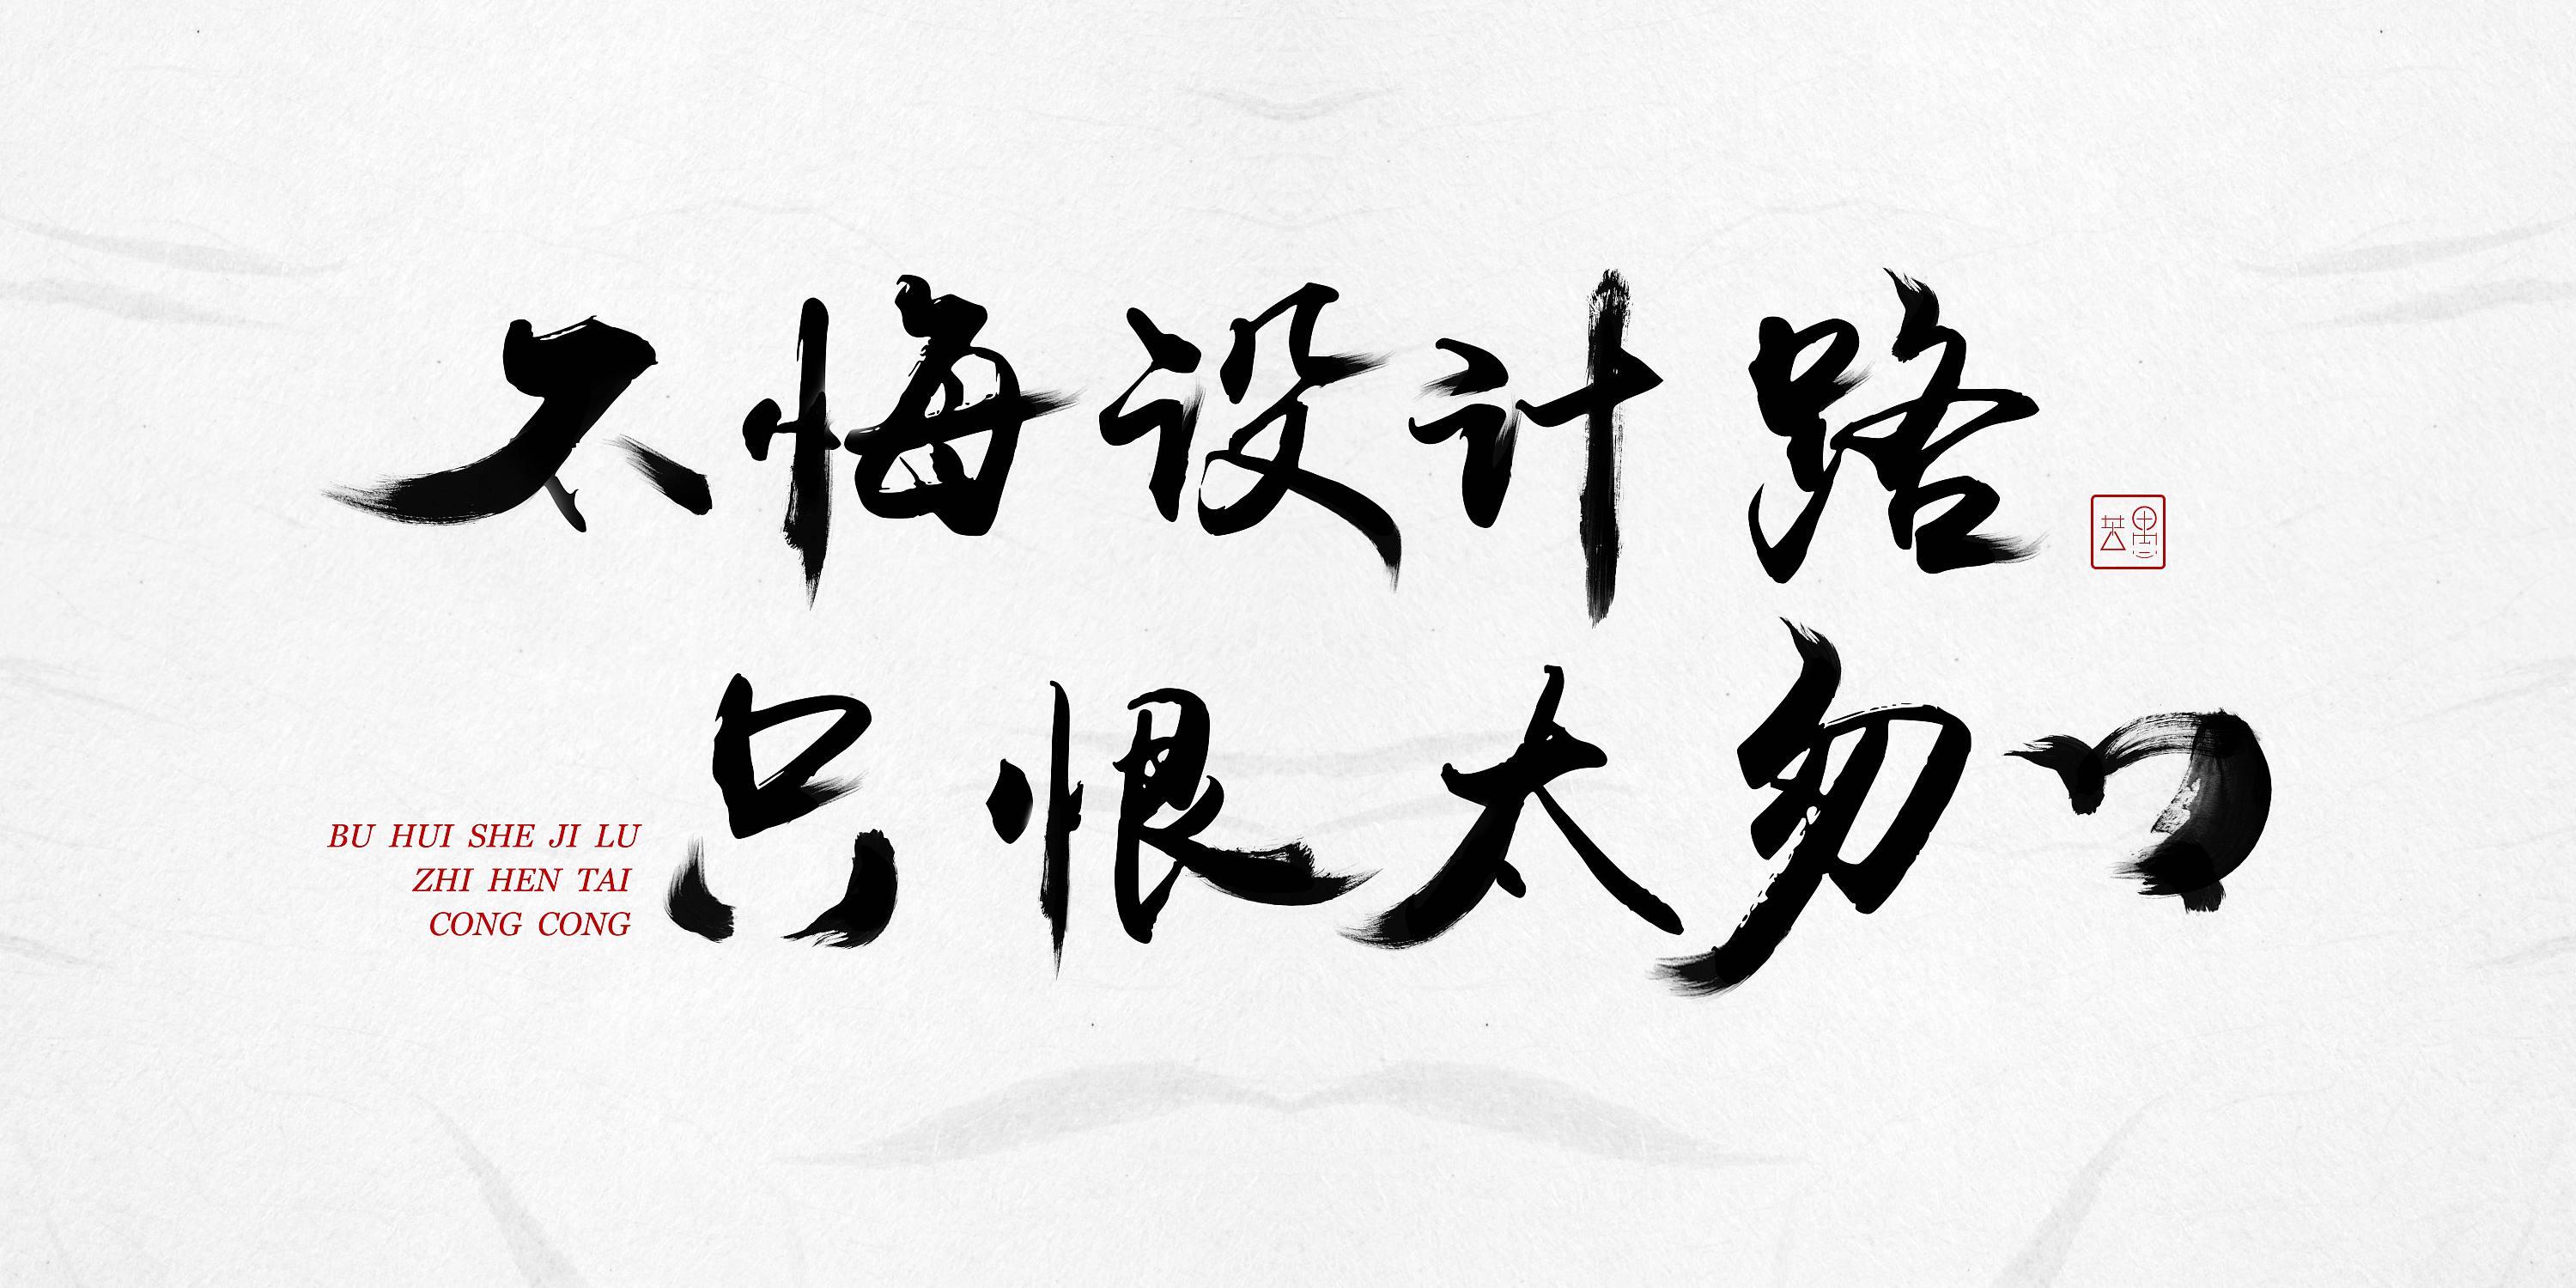 不悔设计路
只恨太匆匆
BU HUI SHE JI LU
ZHI HEN TAI
CONG CONG